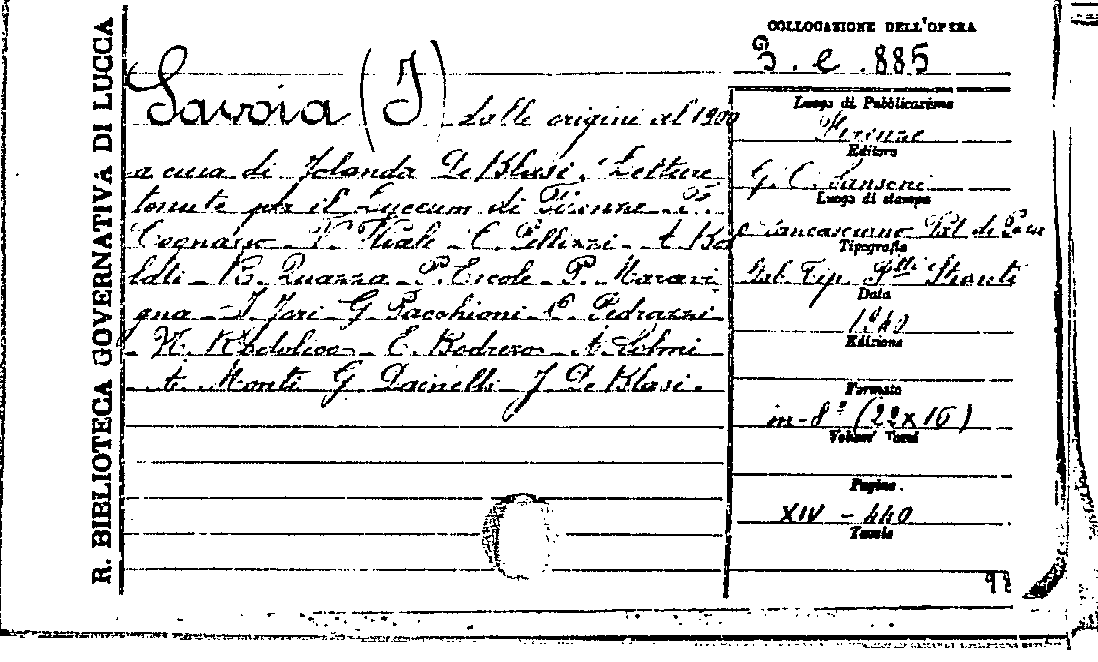 R. BIBLIOTECA GOVERNATIVA DI LUCCA
COLLOCAZIONE DELL'OPERA
G
3. e. 885
Savoia (I) dalle origini al 1900
a cura di Jolanda De Blasi. Letture
tenute per il Lyceum di Firenze _ F.
Cognasso _ V. Viale _ C. Pellizzi _ A. Bo
_ R. Quazza _ P. Ercole _ P. Maravi
gna _ I. Jori G. Pacchioni C. Pedrazzi
_ N. Rodolico _ E. Bodrero _ A. Solmi
_ A. Monti G. Dainelli _ J. De Blasi.
Luogo di Pubblicazione
Firenze
Editore
G. C. Sansoni
Luogo di stampa
S. Casciano Val di Pesa
Tipografia
Stab. Tip. F.lli Stianti
Data
1940
Edizione
Formato
in-8° (22x16)
Volumi Tomi
Pagine.
XIV - 440
Tavole